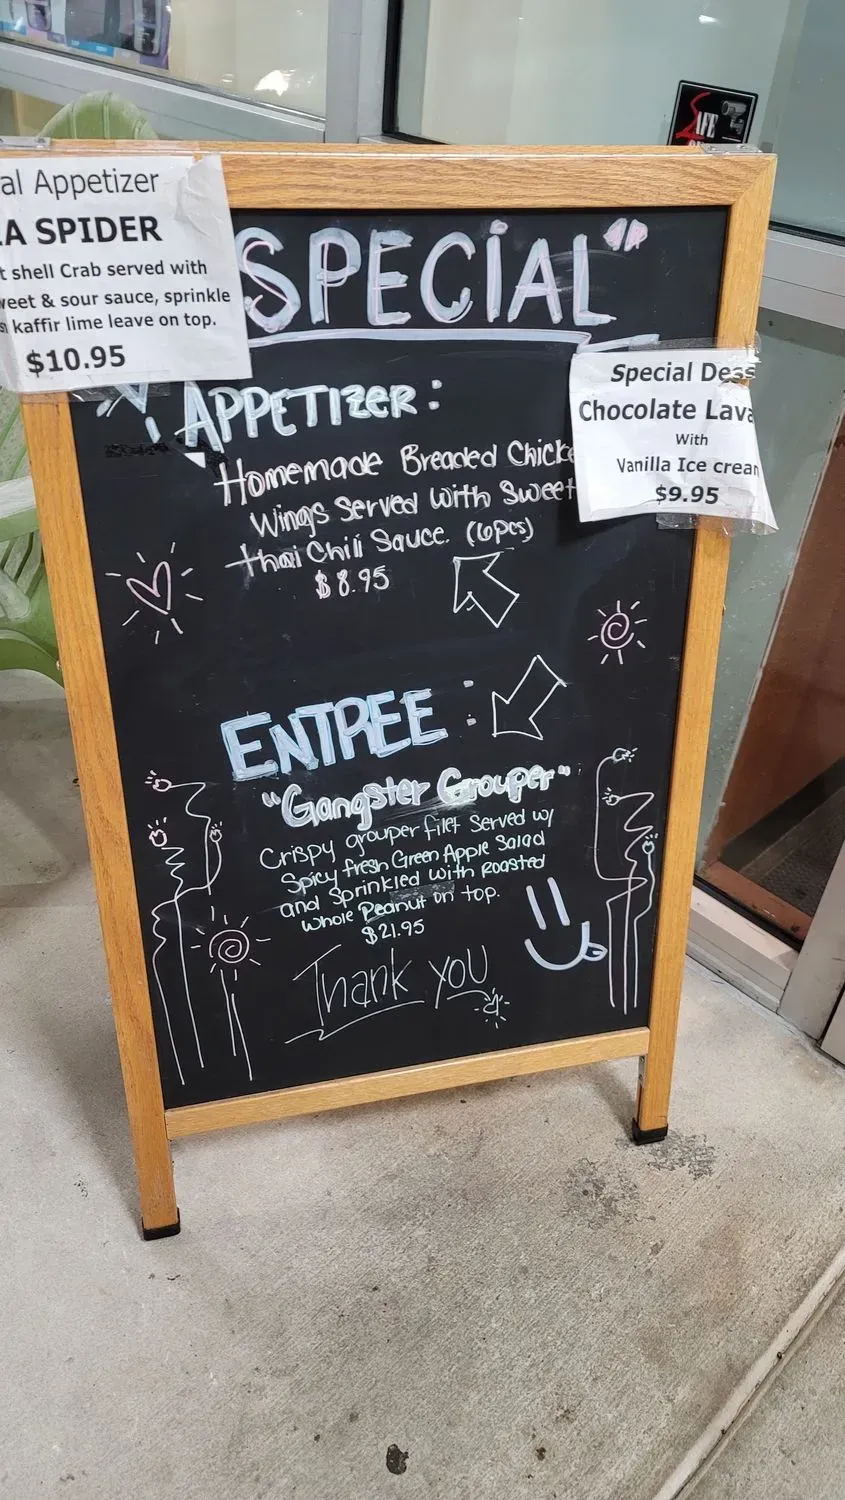 al Appetizer
A SPIDER
t shell Crab served with
weet & sour sauce, sprinkle
kaffir lime leave on top.
$10.95
SPECIAL"
Special Dess
Chocolate Lava
With
Vanilla Ice cream
$9.95
APPETIZER:
Homemade Breaded Chicke
Wings Served with Sweet
thai Chili Sauce. (6pcs)
$8.95
ENTREE:
"Gangster Grouper"
Crispy grouper filet Served w/
Spicy fresh Green Apple Salad
and Sprinkled with Roasted
whole Peanut on top.
$21.95
Thank you
SAFE